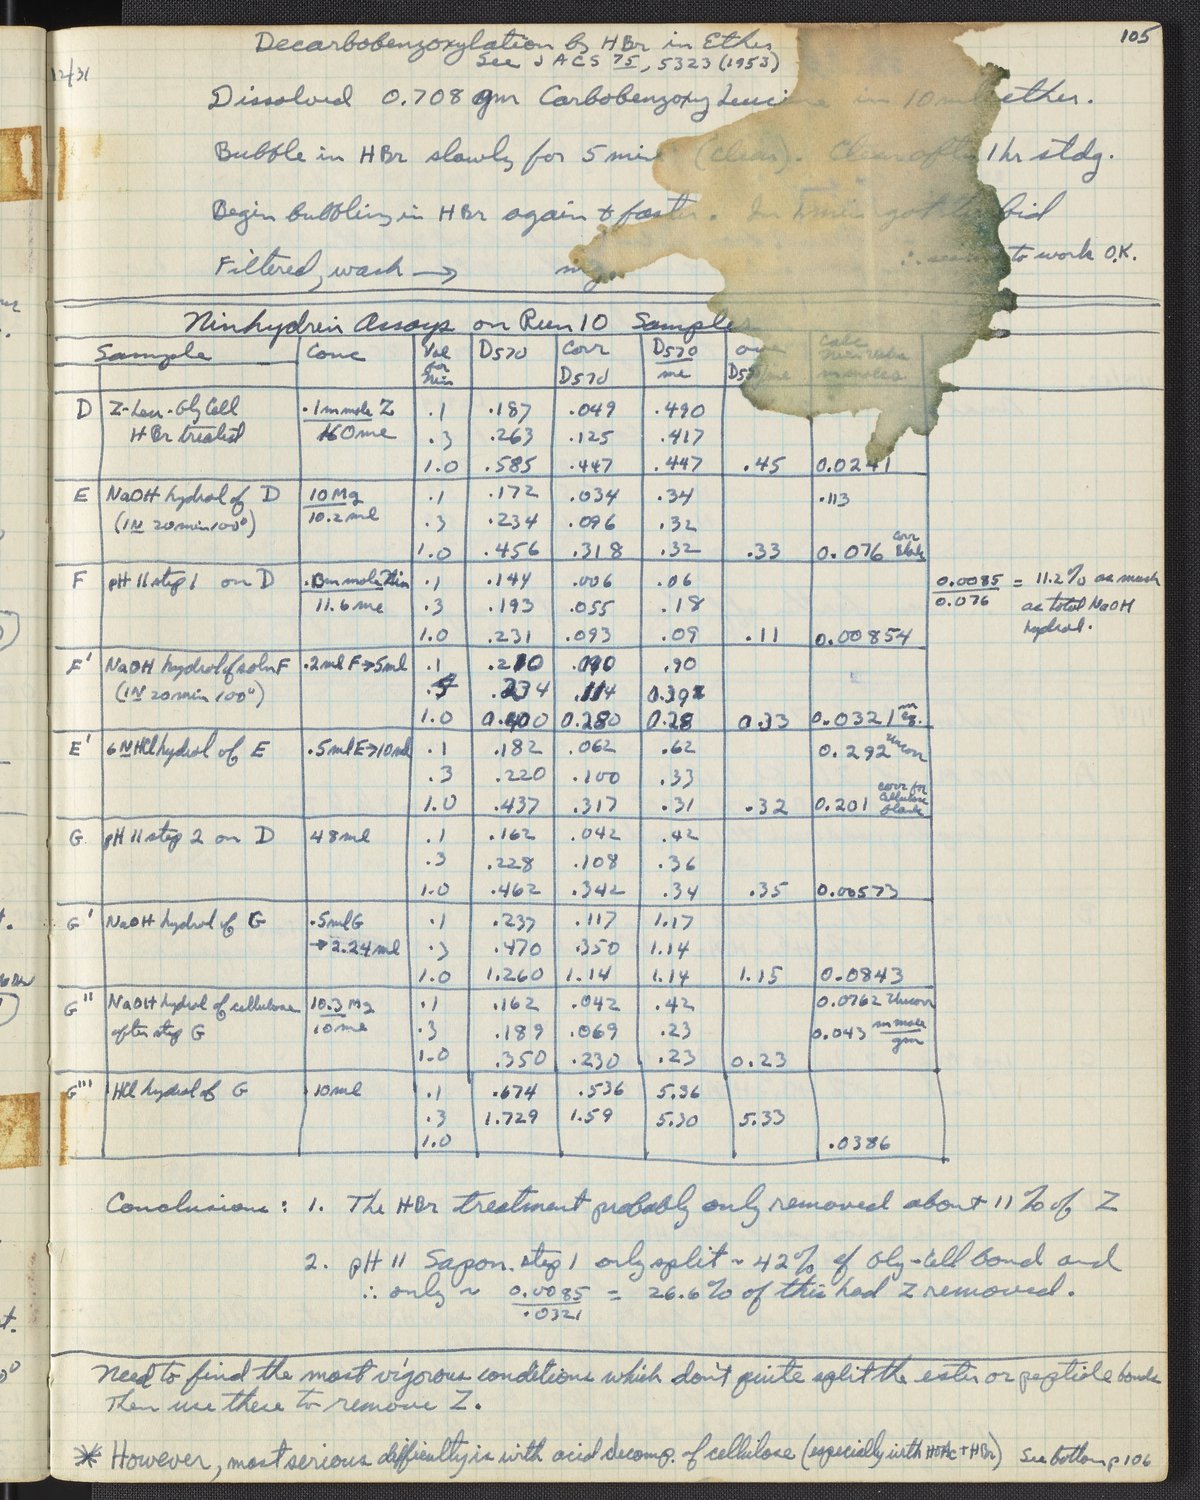 105
12/31
Decarbobenzoxylation by HBr in Ether
See JACS 75, 5323 (1953)
Dissolved 0.708 gm Carbobenzoxy Leucine in 10 ml ether.
Bubble in HBr slowly for 5 min (clear). Clear after 1 hr stdg.
Begin bubbling in HBr again & faster. In got turbid
Filtered, wash → mg ∴ seems to work O.K.
Ninhydrin Assays on Run 10 Samples
Sample Conc Vol for Nin D570 Corr D570 D570/ml ave D570/ml Calc
D Z-Leu-Gly Cell HBr treated .1 mmole Z/160 ml .1 .187 .049 .490
.3 .263 .125 .417
1.0 .585 .447 .447 .45 0.0241
E NaOH hydrol of D 10 Mg/10.2 ml .1 .172 .034 .34 .113
(1N 20 min 100°) .3 .234 .096 .32
1.0 .456 .318 .32 .33 0.076 corr Blank
F pH 11 step 1 on D 11.6 ml .1 .144 .006 .06 0.0085/0.076 = 11.2% as much
.3 .193 .055 .18 as total NaOH
1.0 .231 .093 .09 .11 0.00854 hydrol.
F' NaOH hydrol of soln F .2 ml F → 5 ml .1 .210 .090 .90
(1N 20 min 100°) .234 .114 0.392
1.0 0.400 0.280 0.28 0.33 0.0321
E' 6N HCl hydrol of E .5 ml E → 10 ml .1 .182 .062 .62 0.292 Uncorr
.3 .220 .100 .33
1.0 .437 .317 .31 .32 0.201 corr for Cellulose blank
G pH 11 step 2 on D 48 ml .1 .162 .042 .42
.3 .228 .108 .36
1.0 .462 .342 .34 .35 0.00573
G' NaOH hydrol of G .5 ml G .1 .237 .117 1.17
→ 2.24 ml .3 .470 .350 1.14
1.0 1.260 1.14 1.14 1.15 0.0843
G'' NaOH hydrol of cellulose 10.3 Mg/10 ml .1 .162 .042 .42 0.0762 Uncorr
after step G .3 .189 .069 .23 0.043 m mole/gm
1.0 .350 .230 .23 0.23
G''' HCl hydrol of G 10 ml .1 .674 .536 5.36
.3 1.729 1.59 5.30 5.33
1.0 .0386
Conclusions: 1. The HBr treatment probably only removed about 11% of Z
2. pH 11 Sapon. step 1 only split ~ 42% of Gly-Cell bond and
∴ only ~ 0.0085/.0321 = 26.6% of this had Z removed.
Need to find the most vigorous conditions which don't quite split the ester or peptide bonds
Then use these to remove Z.
* However, most serious difficulty is with acid decomp. of cellulose (especially with HOAc + HBr) See bottom p 106